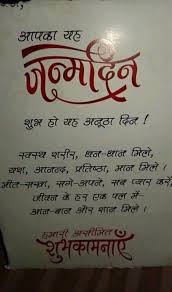 आपका यह
जन्मदिन
शुभ हो यह अनूठा दिन !
स्वस्थ शरीर, धन-धान मिले,
यश, आनन्द, प्रतिष्ठा, मान मिले ।
मीत-सखा, सगे-अपने, सब प्यार करें,
जीवन के हर एक पल में-
आन-बान और शान मिले ।
हमारी असीमित
शुभकामनाएँ